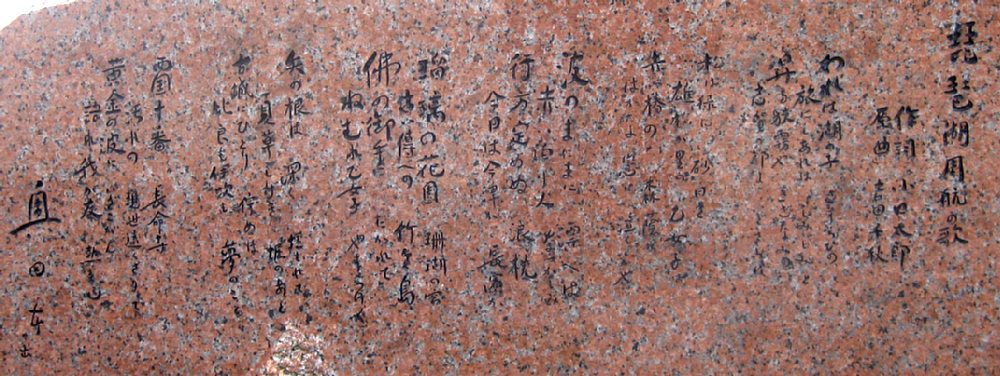 琵琶湖周航の歌
作詞 小口太郎
原曲 吉田千秋
われは湖の子 さすらいの
旅にしあれば しみじみと
昇る狭霧や さざなみの
志賀の都よ いざさらば
松は緑に 砂白き
雄松が里の 乙女子は
赤い椿の 森蔭に
はかない恋に 泣くとかや
波のまにまに 漂えば
赤い泊火 懐かしみ
行方定めぬ 浪枕
今日は今津か 長浜か
瑠璃の花園 珊瑚の宮
古い伝えの 竹生島
佛の御手に いだかれて
ねむれ乙女子 やすらけく
矢の根は 深く埋もれて
夏草しげき 堀のあと
古城にひとり 佇めば
比良も伊吹も 夢のごと
西国十番 長命寺
汚れの 現世遠くさりて
黄金の波に いざこがん
語れ我が友 熱き心